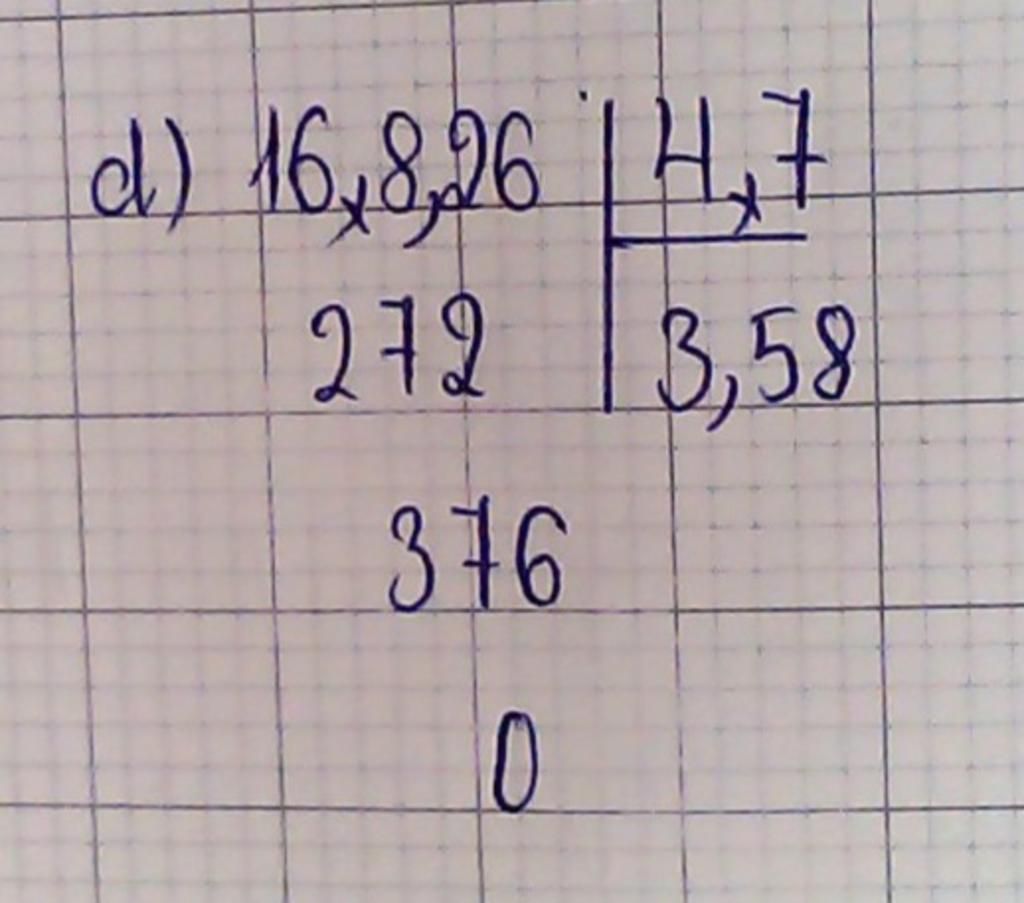 d) 16,8,26 4,7
272 3,58
376
0